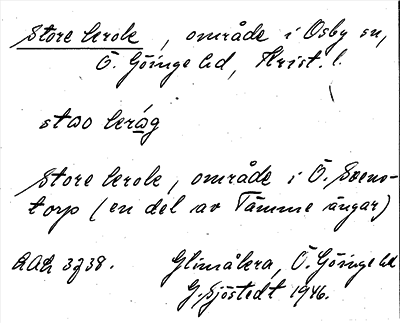 Store lerok, område i Osby sn,
Ö. Göinge hd, Krist. l.
stao leråg
Store lerok, område i Ö. Svens-
torp (en del av Tämme ängar)
3738. Glimåkra, Ö. Göinge hd
G. Sjöstedt 1946.